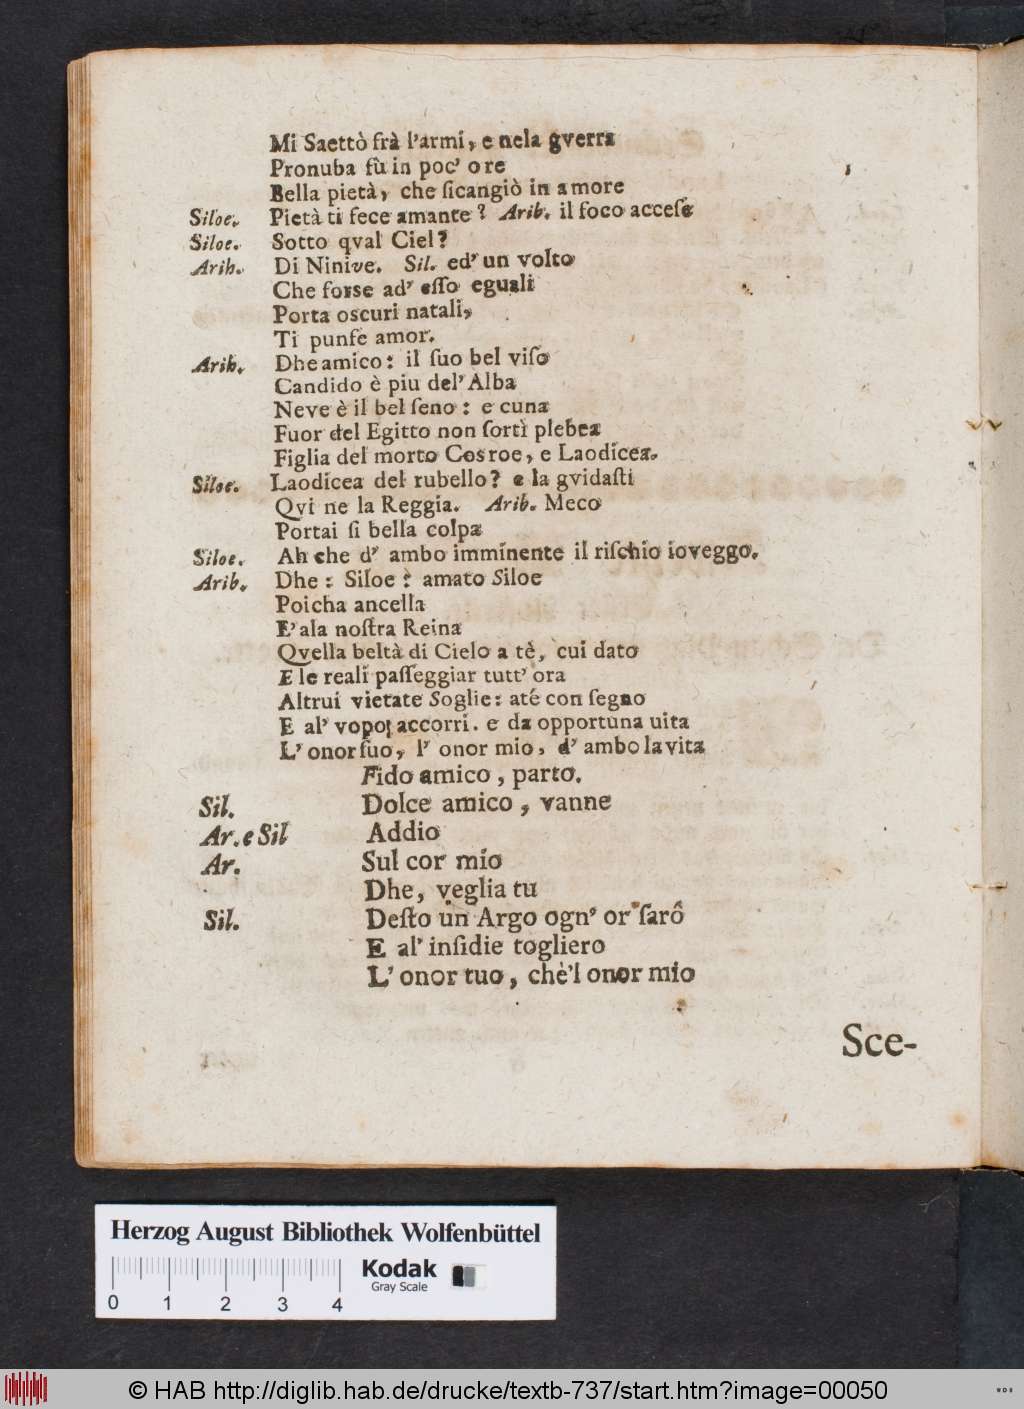 Mi Saettò frà l'armi, e nela gverra
Pronuba fù in poc' ore
Bella pietà, che ſicangiò in amore
Siloe. Pietà ti fece amante? Arib. il foco acceſe
Siloe. Sotto qval Ciel?
Arib. Di Ninive. Sil. ed' un volto
Che forse ad' eſſo eguali
Porta oscuri natali,
Ti punſe amor.
Arib. Dhe amico: il ſuo bel viſo
Candido è piu del' Alba
Neve è il bel ſeno: e cuna
Fuor del Egitto non ſortì plebea
Figlia del morto Cosroe, e Laodicea.
Siloe. Laodicea del rubello? e la gvidaſti
Qvi ne la Reggia. Arib. Meco
Portai ſi bella colpa
Siloe. Ah che d' ambo imminente il riſchio ioveggo.
Arib. Dhe: Siloe? amato Siloe
Poicha ancella
E'ala noſtra Reina
Qvella beltà di Cielo a tè, cui dato
E le reali paſſeggiar tutt' ora
Altrui vietate Soglie: até con ſegno
E al' vopo accorri. e da opportuna uita
L' onor ſuo, l' onor mio, d' ambo la vita
Fido amico, parto.
Sil. Dolce amico, vanne
Ar. e Sil Addio
Ar. Sul cor mio
Dhe, veglia tu
Sil. Deſto un Argo ogn' or ſarô
E al' inſidie togliero
L' onor tuo, chè'l onor mio
Sce-
Herzog August Bibliothek Wolfenbüttel
0 1 2 3 4
Kodak
Gray Scale
© HAB http://diglib.hab.de/drucke/textb-737/start.htm?image=00050